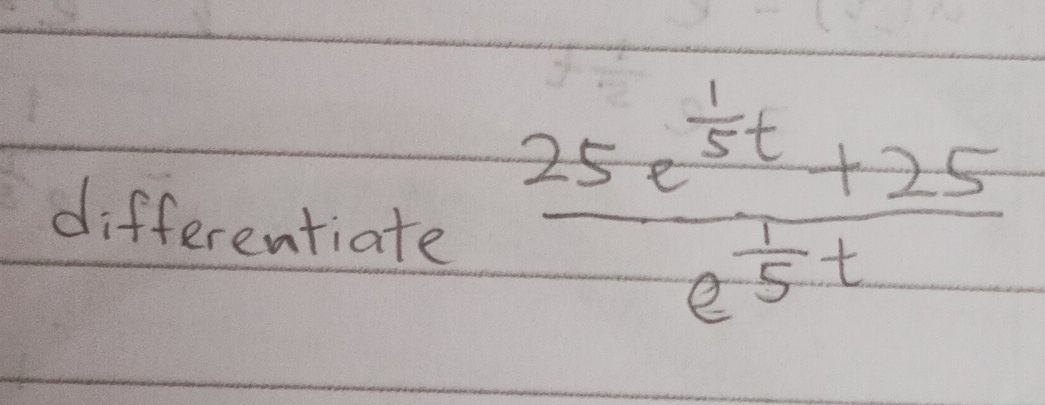 differentiate \frac{25e^{\frac{1}{5}t}+25}{e^{\frac{1}{5}t}}